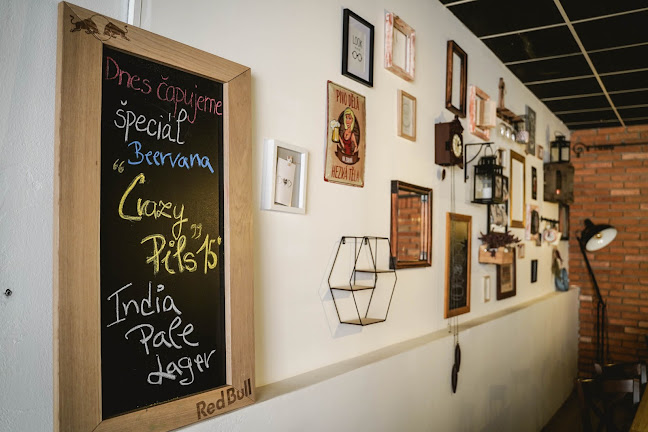 Dnes čapujeme
špeciál
"Beervana
"Crazy
Pils 15°"
India
Pale
Lager
Red Bull
LOOK
PIVO DĚLÁ
HEZKÁ TĚLA